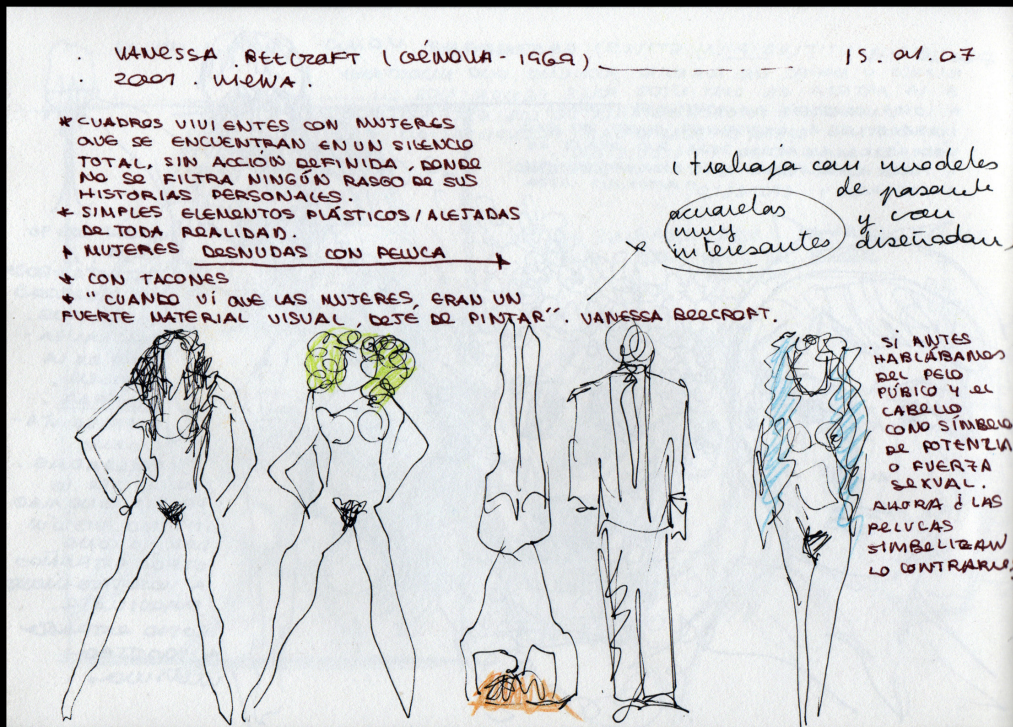 VANESSA BEECROFT (GÉNOVA - 1969) 15.01.07
2001. Viena.
* CUADROS VIVIENTES CON MUJERES
QUE SE ENCUENTRAN EN UN SILENCIO
TOTAL, SIN ACCIÓN DEFINIDA, DONDE
NO SE FILTRA NINGÚN RASGO DE SUS
HISTORIAS PERSONALES.
* SIMPLES ELEMENTOS PLÁSTICOS/ALEJADAS
DE TODA REALIDAD.
* MUJERES DESNUDAS CON PELUCA
CON TACONES
* "CUANDO VÍ QUE LAS MUJERES, ERAN UN
FUERTE MATERIAL VISUAL, DEJÉ DE PINTAR". VANESSA BEECROFT.
trabaja con modelos
de pasarela
y con
diseñadores
acuarelas
muy
interesantes
SI ANTES
HABLÁBAMOS
DEL PELO
PÚBICO Y EL
CABELLO
COMO SÍMBOLO
DE POTENZIA
O FUERZA
SEXUAL.
AHORA ¿LAS
PELUCAS
SIMBOLIZAN
LO CONTRARIO?